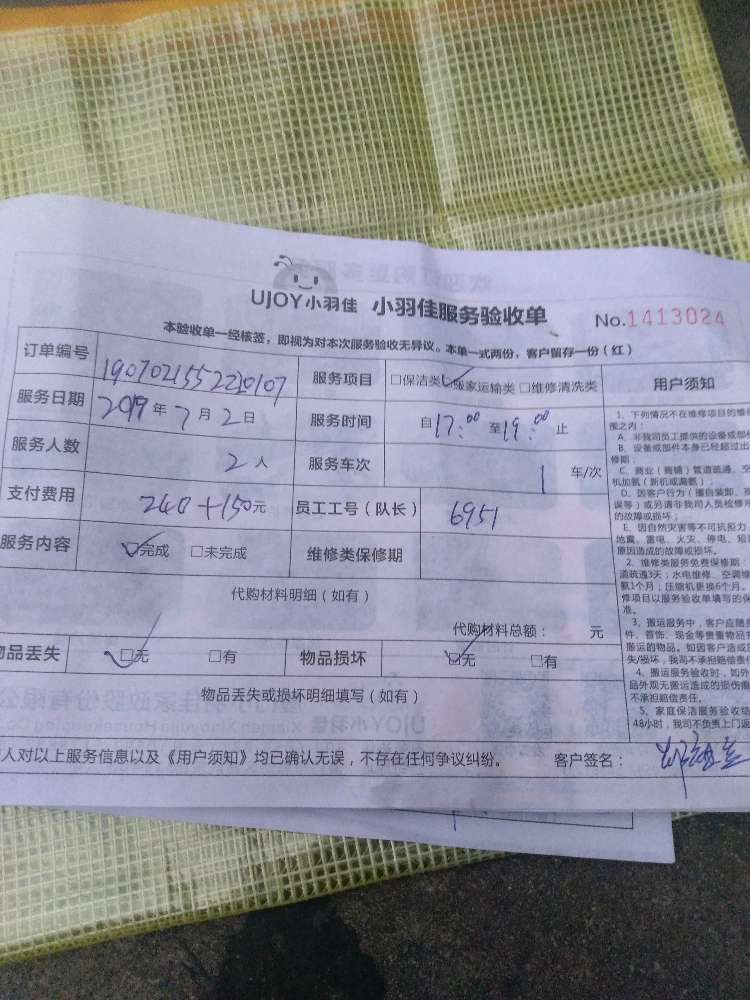 UJOY小羽佳 小羽佳服务验收单 No.1413024
本验收单一经核签，即视为对本次服务验收无异议。本单一式两份，客户留存一份（红）
订单编号 服务项目 □保洁类 搬家运输类 □维修清洗类
服务日期 2019年7月2日 服务时间 自17:00至19:00止
服务人数 2人 服务车次 1 车/次
支付费用 240+150元 员工工号（队长） 6951
服务内容 ☑完成 □未完成 维修类保修期
代购材料明细（如有）
代购材料总额： 元
物品丢失 ☑无 □有 物品损坏 ☑无 □有
物品丢失或损坏明细填写（如有）
人对以上服务信息以及《用户须知》均已确认无误，不存在任何争议纠纷。 客户签名：
用户须知
1、下列情况不在维修项目的维修
围之内：
A、非我司员工提供的设备或部件
B、设备或部件本身已经超过出
修期；
C、商业（商铺）管道疏通、空
机加氨（新机或漏氨）；
D、因客户行为（擅自装卸、操
误等）或另请非我司人员检修所
的故障或损坏；
E、因自然灾害等不可抗拒力
地震、雷电、火灾、停电、短
原因造成的故障或损坏。
2、维修类服务免费保修期：
道疏通3天；水电维修、空调维
氨1个月；压缩机更换6个月。
修项目以服务验收单填写的保
准。
3、搬运服务中，客户应随身
件、首饰、现金等贵重物品
搬运的物品。如因客户造成的
失/损坏，我司不承担赔偿责
4、搬运服务验收时，如外
品外观无搬运造成的损伤
不承担赔偿责任。
5、家庭保洁服务验收结
48小时，我司不负责上门返